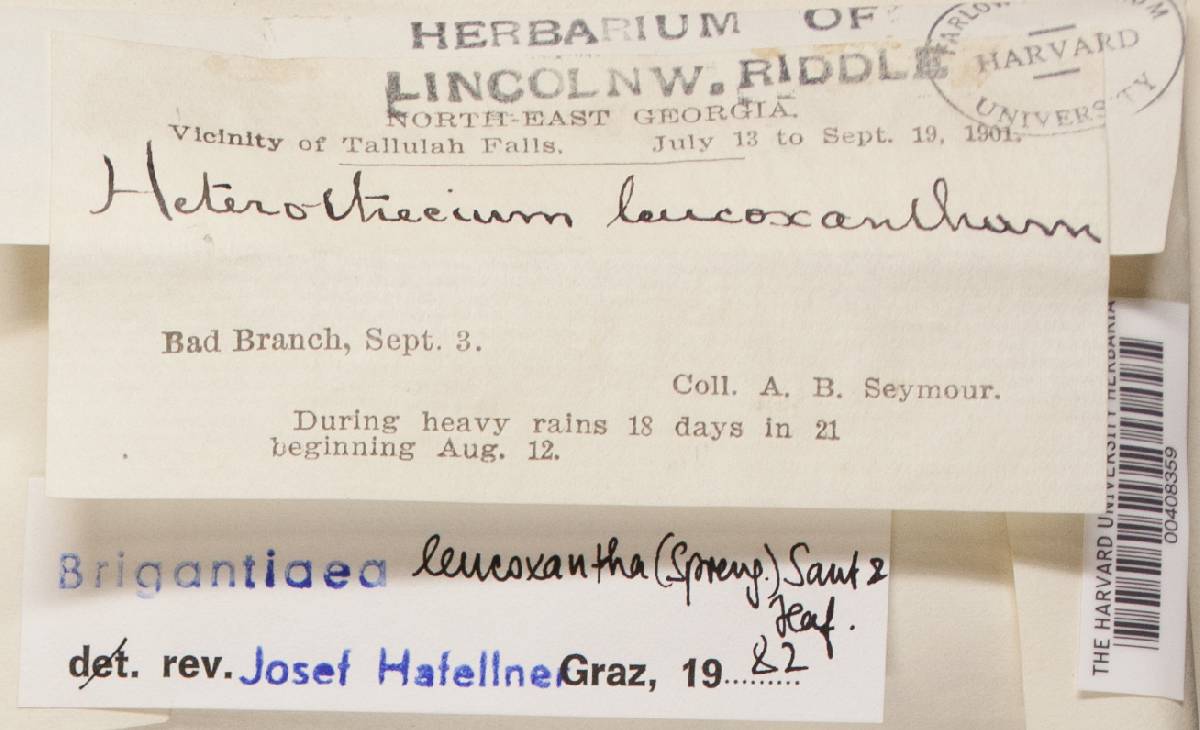 HERBARIUM OF
LINCOLN W. RIDDLE
HARVARD
UNIVERSITY
NORTH-EAST GEORGIA.
Vicinity of Tallulah Falls. July 13 to Sept. 19, 1901.
Heterothecium leucoxanthum
Bad Branch, Sept. 3.
Coll. A. B. Seymour.
During heavy rains 18 days in 21
beginning Aug. 12.
Brigantiaea leucoxantha (Spreng.) Sant &
Haf.
det. rev. Josef Hafellner Graz, 19 82
THE HARVARD UNIVERSITY HERBARIA
00408359